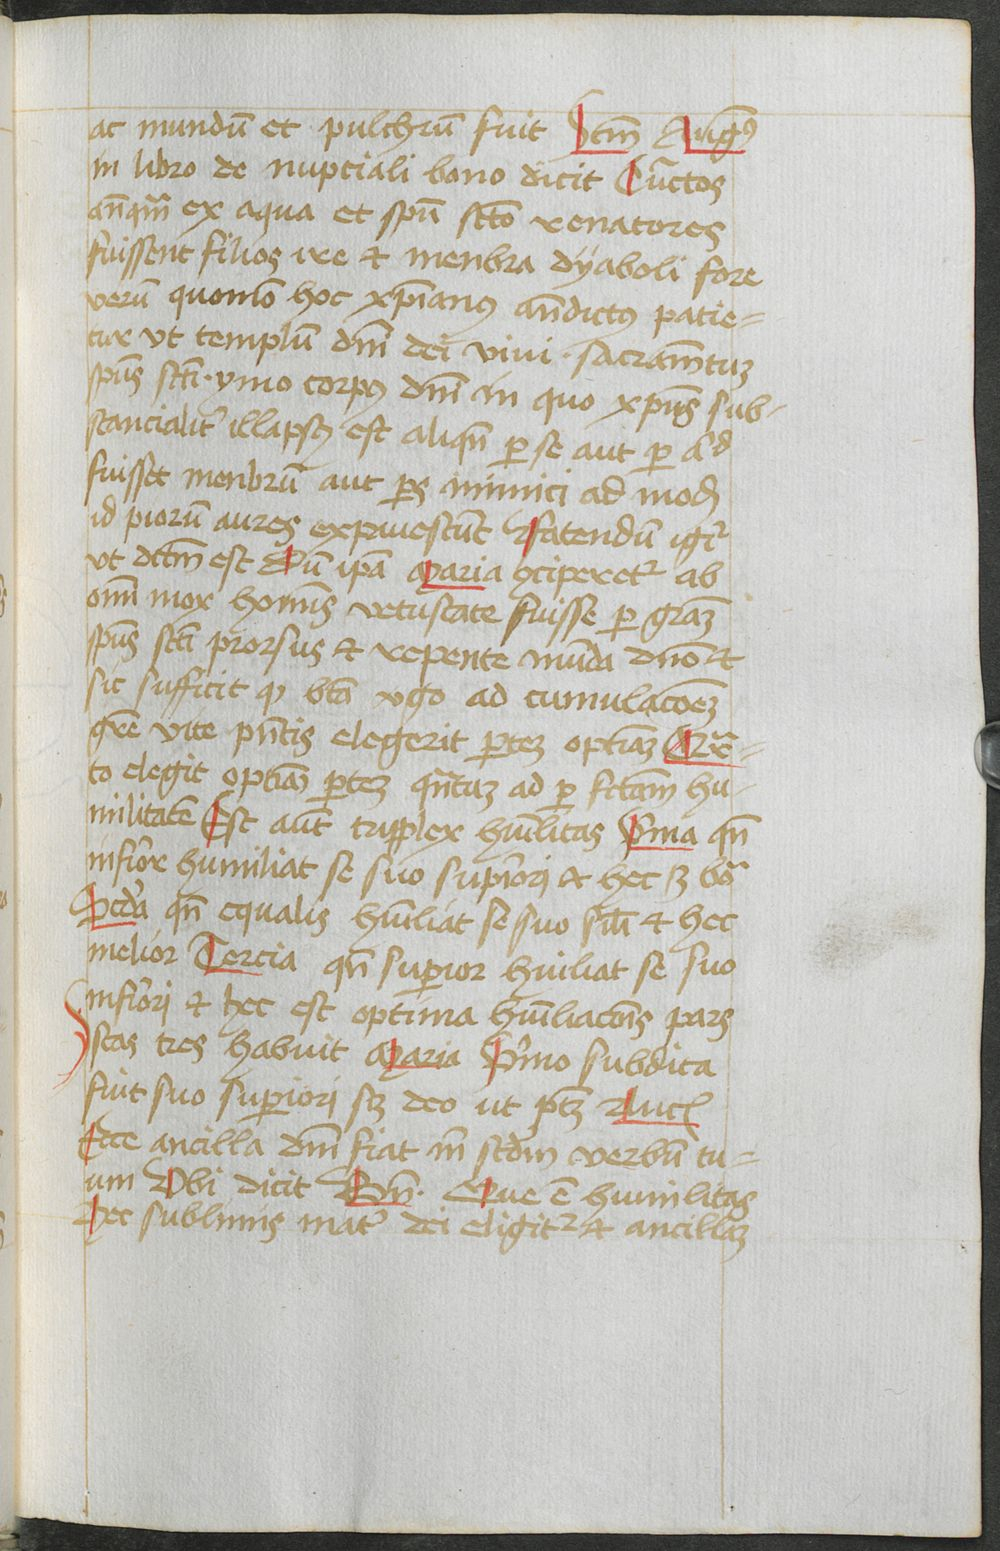 ac mundū et pulchrū fuit Itm̄ Aug9
in libro de nupciali bono dicit Cūctos
an̄qm̄ ex aqua et spū scto renatores
fuissent filios ire et menbra dyaboli fore
verū quomō hoc xp̄ian9 and̄ict9 patie=
tur vt templū dn̄i dei vini · sacramētuz
spūs scti · ymo corp9 dn̄i in quo xpūs sub-
stancialit' illaps9 est aliqn̄ p se aut p a'd
fuisset menbrū aut ps inimici ad mod
id piorū aures expauescūt Fatendū igit'
vt dctm̄ est Cū ip̄a Maria 9ciperet' ab
omī mox homīs vetustate fuisse p grāz
spūs scti prorsus et repente mūda dnō et
sic sufficit q btā vgo ad cumulacōez
grē vite pn̄tis elegerit ptez optiāz Qr=
to elegit optiāz ptez qn̄tuz ad pfctam hu-
militatē Est aūt triplex hūilitas Pma qn̄
infior humiliat se suo supiori et hec ē boa
Scda qn̄ equalis hūiliat se suo sili et hec
melior Tercia qn̄ superior hūiliat se suo
infiori et hec est optima hūiliacōis pars
Istas tres habuit Maria Pimo subdita
fuit suo superiori sz deo ut ptz Luc
Ecce ancilla dn̄i fiat m̄ scdm verbū tu=
um Vbi dicit Bn̄ · Que ē humilitas
hec sublimis mat' dei eligit' et ancillaz